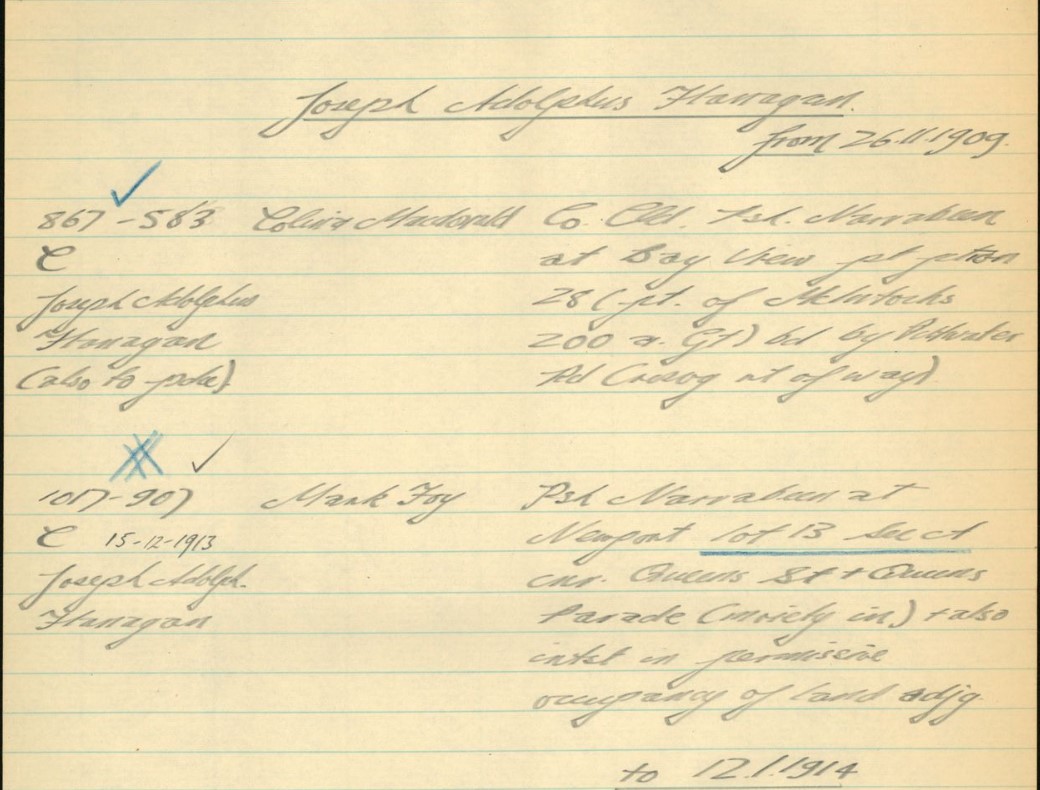 Joseph Adolphus Flanagan.
from 26.11.1909.
867-583 Macdonald Co. Cld. Psh. Narrabeen
C at Bay View pt ption
Joseph Adolphus 28 (pt. of McIntoshs
Flanagan 200 a. Gt) bd by Pittwater
(also to pda) Rd (resvg rt of way)
1017-907 Mark Foy Psh Narrabeen at
C 15-12-1913 Newport lot 13 sec
Joseph Adolph. cnr. Queens St + Queens
Flanagan Parade (moiety in) + also
intst in permissive
occupancy of land adjg
to 12.1.1914